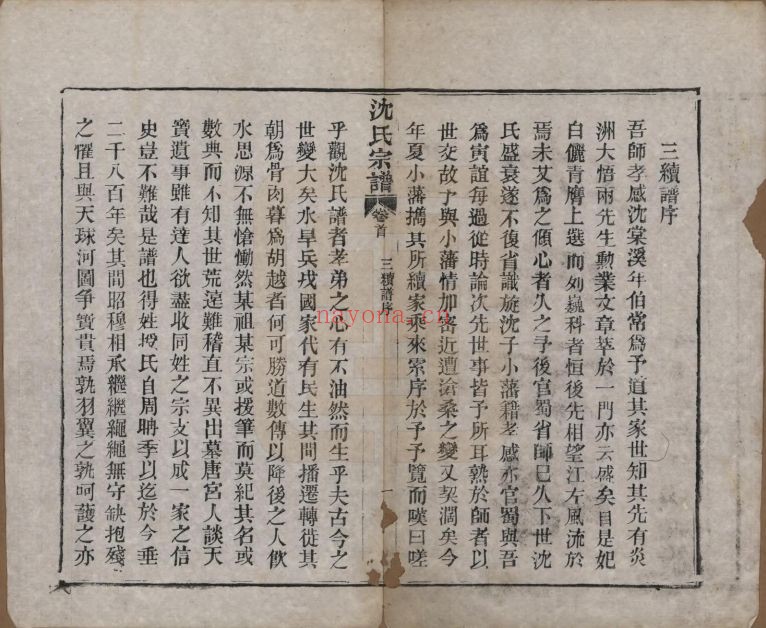 三續譜序
吾師孝感沈棠溪年伯常爲予道其家世知其先有炎
洲大悟兩先生勳業文章萃於一門亦云盛矣自是妃
白儷青膺上選而列巍科者恒後先相望江左風流於
焉未艾爲之傾心者久之予後官蜀省師已久下世沈
氏盛衰遂不復省識旋沈子小藩籍孝感亦官蜀與吾
爲寅誼每過從時論次先世事皆予所耳熟於師者以
世交故予與小藩情加密近遭滄桑之變又契濶矣今
年夏小藩擕其所續家乘來索序於予予覽而嘆曰嗟
沈氏宗譜
卷首
三續譜序
一
乎觀沈氏譜者孝弟之心有不油然而生乎夫古今之
世變大矣水旱兵戎國家代有民生其間播遷轉徙其
朝爲骨肉暮爲胡越者何可勝道數傳以降後之人飲
水思源不無愴慟然某祖某宗或援筆而莫紀其名或
數典而不知其世荒遠難稽直不異出墓唐宮人談天
寶遺事雖有達人欲盡收同姓之宗支以成一家之信
史豈不難哉是譜也得姓授氏自周聃季以迄於今垂
二千八百年矣其間昭穆相承繼繼繩繩無守缺抱殘
之懼且與天球河圖爭寶貴焉孰羽翼之孰呵護之亦
nayona.cn